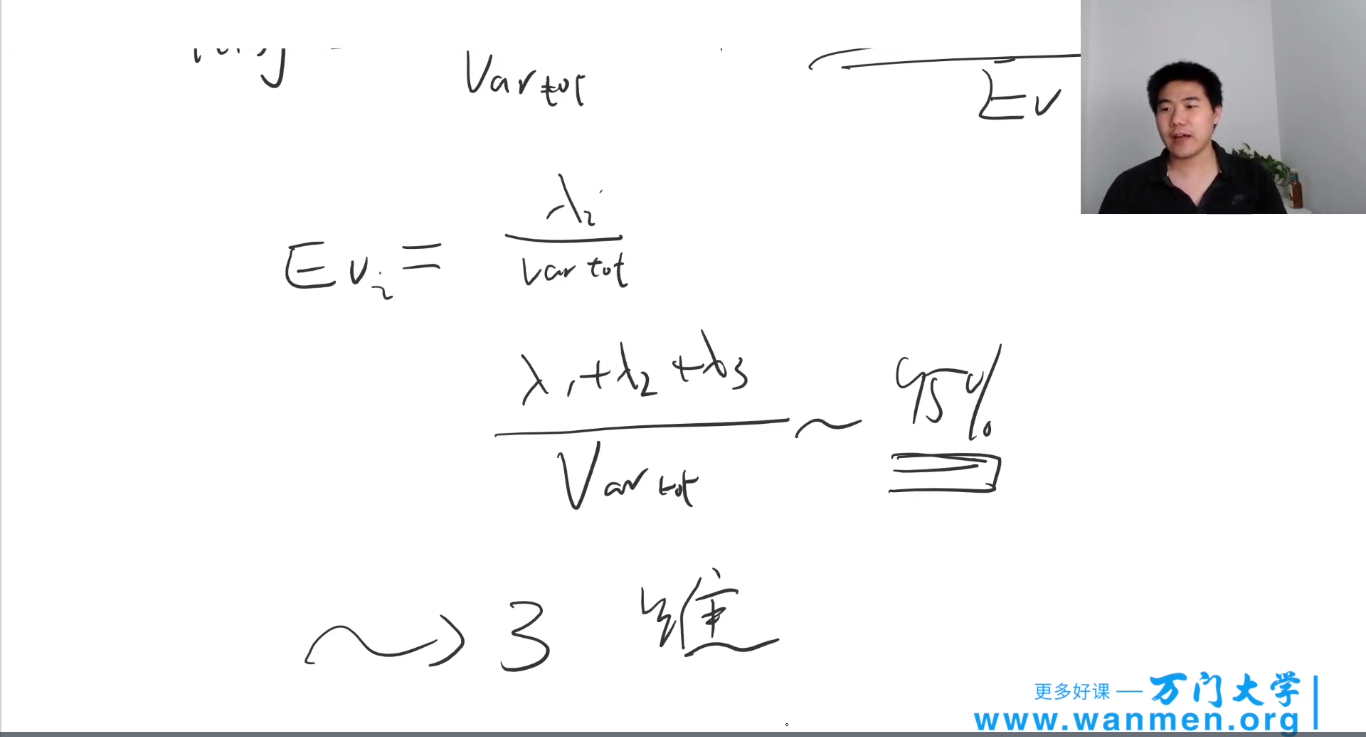 Var tot
Ev
Ev_i = λ_i / var tot
λ_1 + λ_2 + λ_3 / Var tot ~ 95%
~> 3 维
更多好课 — 万门大学
www.wanmen.org